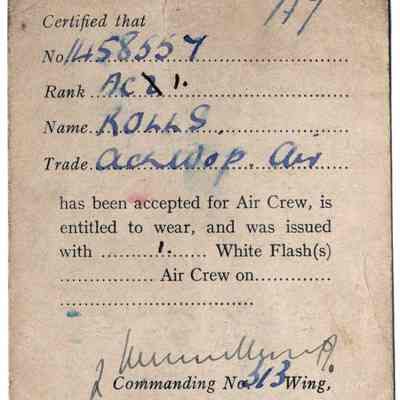 Certified that
No 1458557
Rank AC2 1.
Name ROLLS.
Trade ac/wop. Air
has been accepted for Air Crew, is
entitled to wear, and was issued
with 1. White Flash(s)
Air Crew on
Commanding No. 313 Wing,